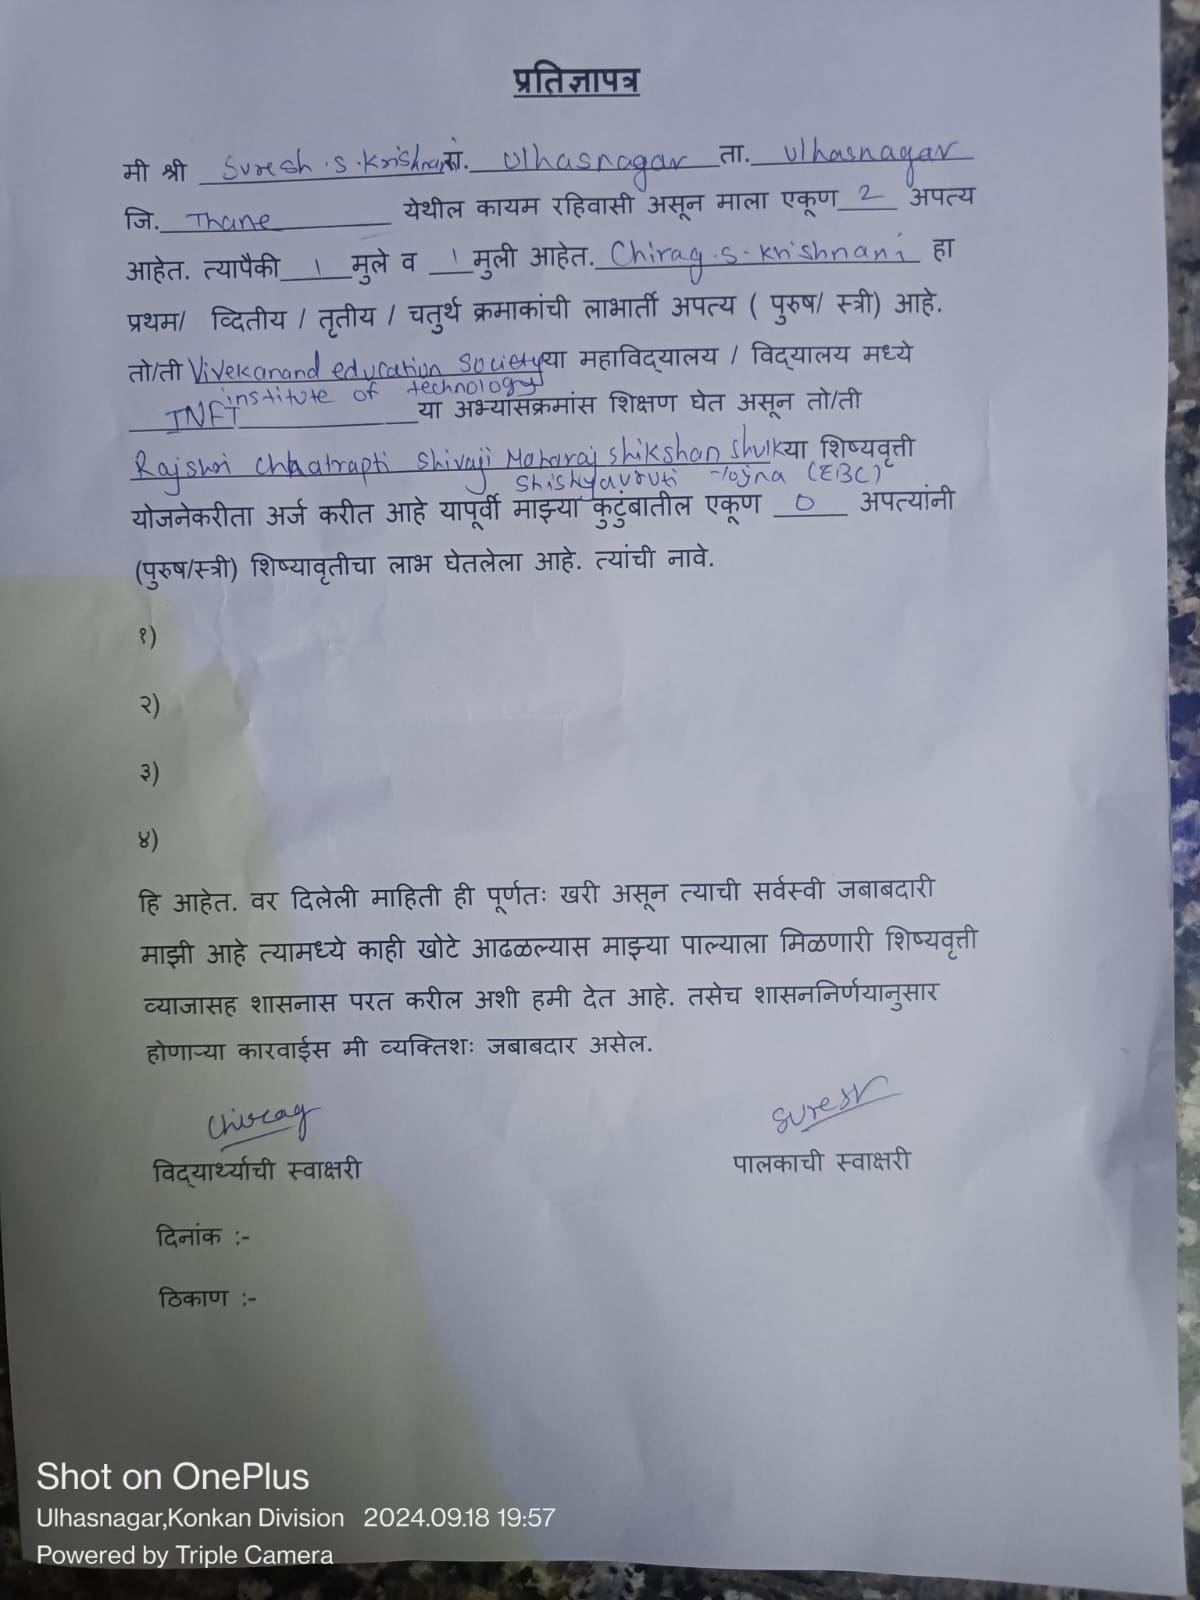 प्रतिज्ञापत्र
मी श्री Suresh.S.Krishnani रा. Ulhasnagar ता. Ulhasnagar
जि. Thane येथील कायम रहिवासी असून माला एकूण 2 अपत्य
आहेत. त्यापैकी 1 मुले व 1 मुली आहेत. Chirag.S.Krishnani हा
प्रथम/ व्दितीय / तृतीय / चतुर्थ क्रमाकांची लाभार्ती अपत्य ( पुरुष/ स्त्री) आहे.
तो/ती Vivekanand education Society या महाविद्यालय / विद्यालय मध्ये
institute of technology
INFT या अभ्यासक्रमांस शिक्षण घेत असून तो/ती
Rajshri Chhatrapti Shivaji Maharaj Shikshan Shulk या शिष्यवृत्ती
Shishyavruti Yojna (EBC)
योजनेकरीता अर्ज करीत आहे यापूर्वी माझ्या कुटुंबातील एकूण 0 अपत्यांनी
(पुरुष/स्त्री) शिष्यावृतीचा लाभ घेतलेला आहे. त्यांची नावे.
१)
२)
३)
४)
हि आहेत. वर दिलेली माहिती ही पूर्णतः खरी असून त्याची सर्वस्वी जबाबदारी
माझी आहे त्यामध्ये काही खोटे आढळल्यास माझ्या पाल्याला मिळणारी शिष्यवृत्ती
व्याजासह शासनास परत करील अशी हमी देत आहे. तसेच शासननिर्णयानुसार
होणाऱ्या कारवाईस मी व्यक्तिशः जबाबदार असेल.
Chirag Suresh
विद्यार्थ्याची स्वाक्षरी पालकाची स्वाक्षरी
दिनांक :-
ठिकाण :-
Shot on OnePlus
Ulhasnagar,Konkan Division 2024.09.18 19:57
Powered by Triple Camera